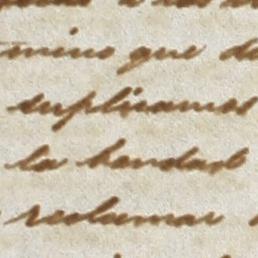 mino que de
suplicamos
la bondad
reclamar